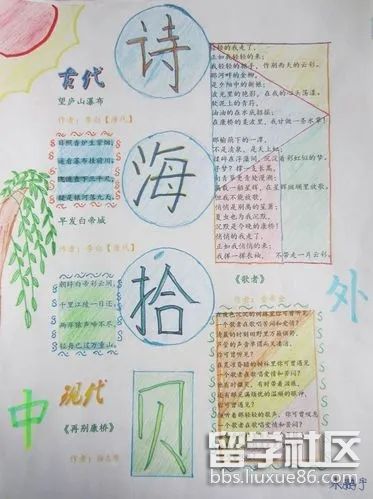 诗
海
拾
贝
古代
望庐山瀑布
作者：李白【唐代】
日照香炉生紫烟，
遥看瀑布挂前川，
飞流直下三千尺，
疑是银河落九天。
早发白帝城
作者：李白【唐代】
朝辞白帝彩云间，
千里江陵一日还，
两岸猿声啼不尽，
轻舟已过万重山。
现代
《再别康桥》
作者：徐志摩
轻轻的我走了，
正如我轻轻的来；
我轻轻的招手，作别西天的云彩。
那河畔的金柳，
是夕阳中的新娘；
波光里的艳影，在我的心头荡漾。
软泥上的青荇，
油油的在水底招摇；
在康桥的柔波里，我甘做一条水草！
那榆荫下的一潭，
不是清泉，是天上虹
揉碎在浮藻间，沉淀着彩虹似的梦。
寻梦？撑一支长篙，
向青草更青处漫溯；
满载一船星辉，在星辉斑斓里放歌。
但我不能放歌，
悄悄是别离的笙箫；
夏虫也为我沉默，
沉默是今晚的康桥！
悄悄的我走了，
正如我悄悄的来；
我挥一挥衣袖，不带走一片云彩。
《歌者》
外
中
你可曾遇见？
一个歌者在歌唱爱情和苦闷？
你可曾遇见？
一个歌者在歌唱爱情和苦闷？
留学社区
bbs.liuxue86.com